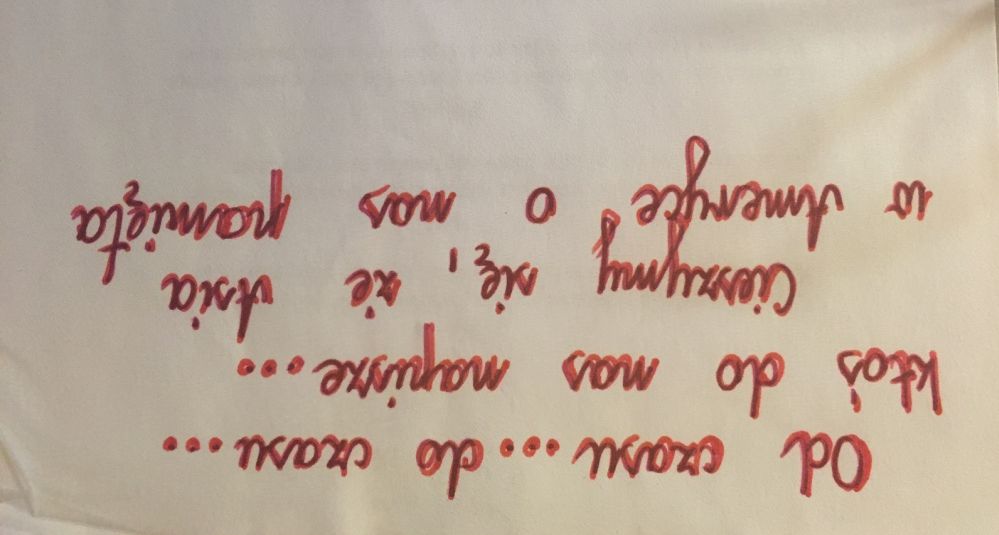 Od czasu...do czasu...
ktoś do nas napisze...
Cieszymy się, że Asia
w Ameryce o nas pamięta